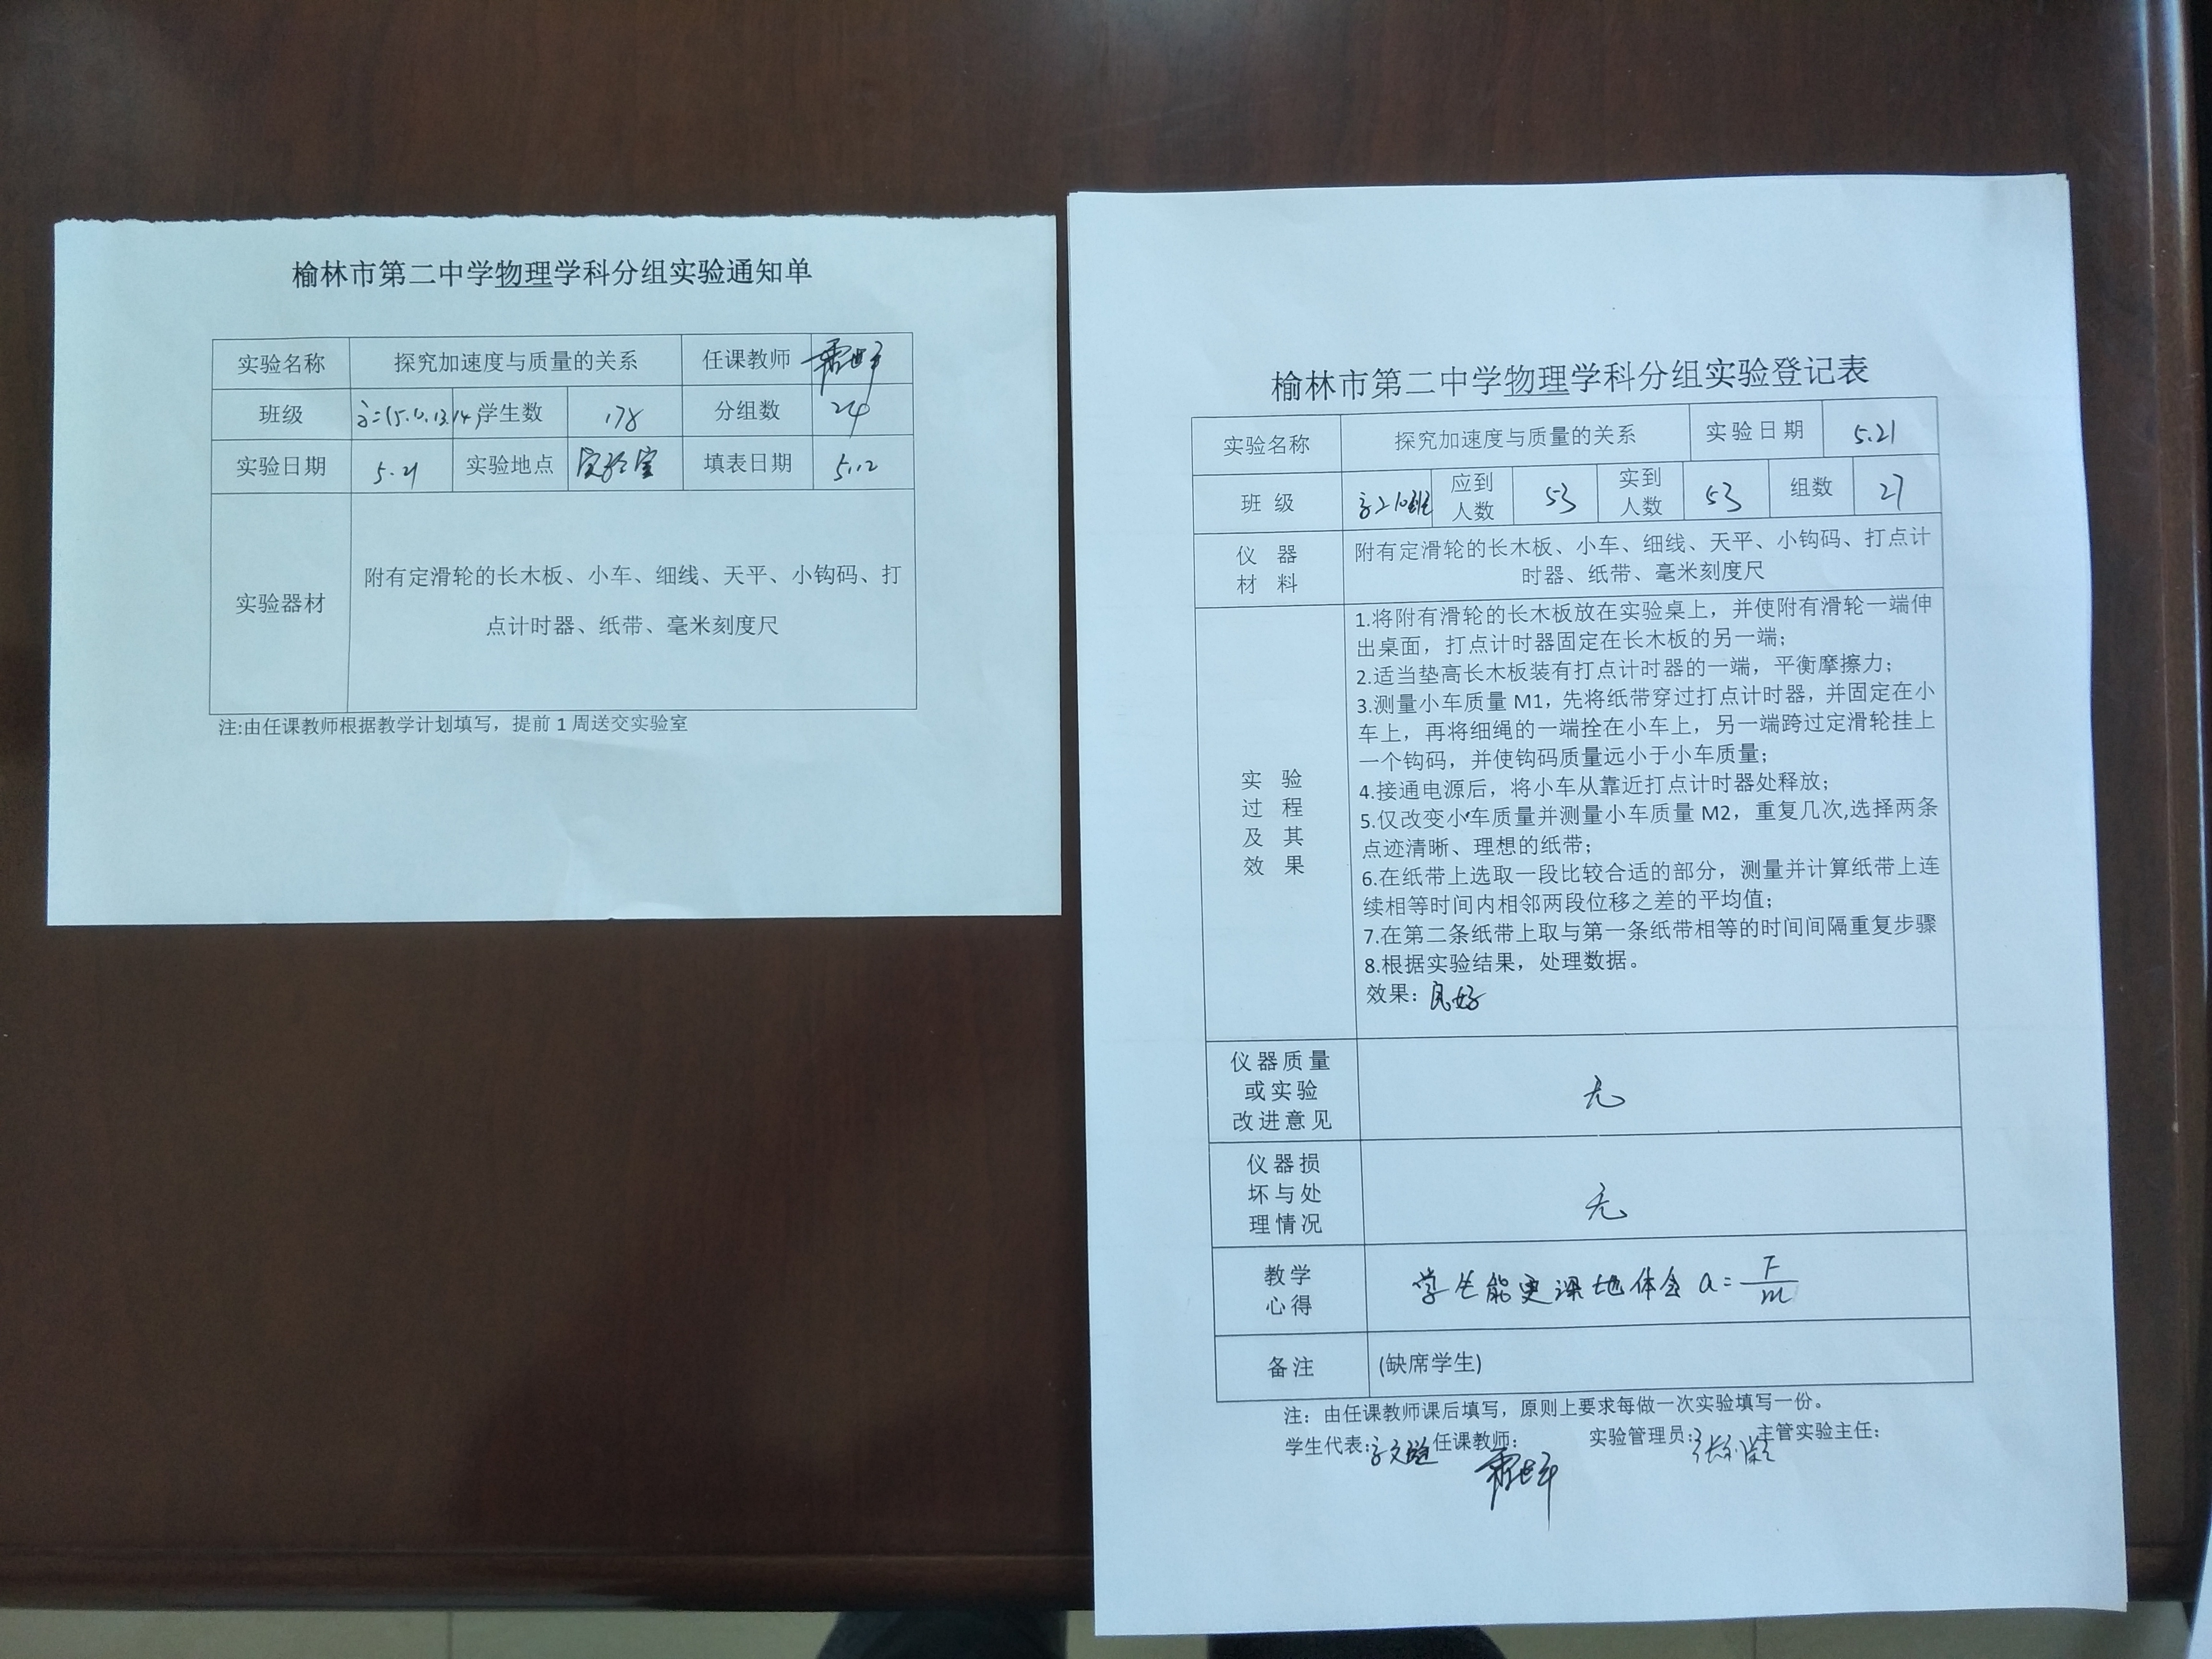 榆林市第二中学物理学科分组实验通知单
实验名称 探究加速度与质量的关系 任课教师
班级 学生数 178 分组数 24
实验日期 5.21 实验地点 实验室 填表日期 5.12
实验器材
附有定滑轮的长木板、小车、细线、天平、小钩码、打
点计时器、纸带、毫米刻度尺
注:由任课教师根据教学计划填写，提前 1 周送交实验室
榆林市第二中学物理学科分组实验登记表
实验名称 探究加速度与质量的关系 实验日期 5.21
班 级 高二10班 应到人数 53 实到人数 53 组数 27
仪 器
材 料
附有定滑轮的长木板、小车、细线、天平、小钩码、打点计
时器、纸带、毫米刻度尺
实 验
过 程
及 其
效 果
1.将附有滑轮的长木板放在实验桌上，并使附有滑轮一端伸
出桌面，打点计时器固定在长木板的另一端；
2.适当垫高长木板装有打点计时器的一端，平衡摩擦力；
3.测量小车质量 M1，先将纸带穿过打点计时器，并固定在小
车上，再将细绳的一端拴在小车上，另一端跨过定滑轮挂上
一个钩码，并使钩码质量远小于小车质量；
4.接通电源后，将小车从靠近打点计时器处释放；
5.仅改变小车质量并测量小车质量 M2，重复几次,选择两条
点迹清晰、理想的纸带；
6.在纸带上选取一段比较合适的部分，测量并计算纸带上连
续相等时间内相邻两段位移之差的平均值；
7.在第二条纸带上取与第一条纸带相等的时间间隔重复步骤
8.根据实验结果，处理数据。
效果：良好
仪器质量
或实验
改进意见
无
仪器损
坏与处
理情况
无
教学
心得
学生能更深地体会 a=F/m
备注 (缺席学生)
注：由任课教师课后填写，原则上要求每做一次实验填写一份。
学生代表: 任课教师: 实验管理员: 主管实验主任: